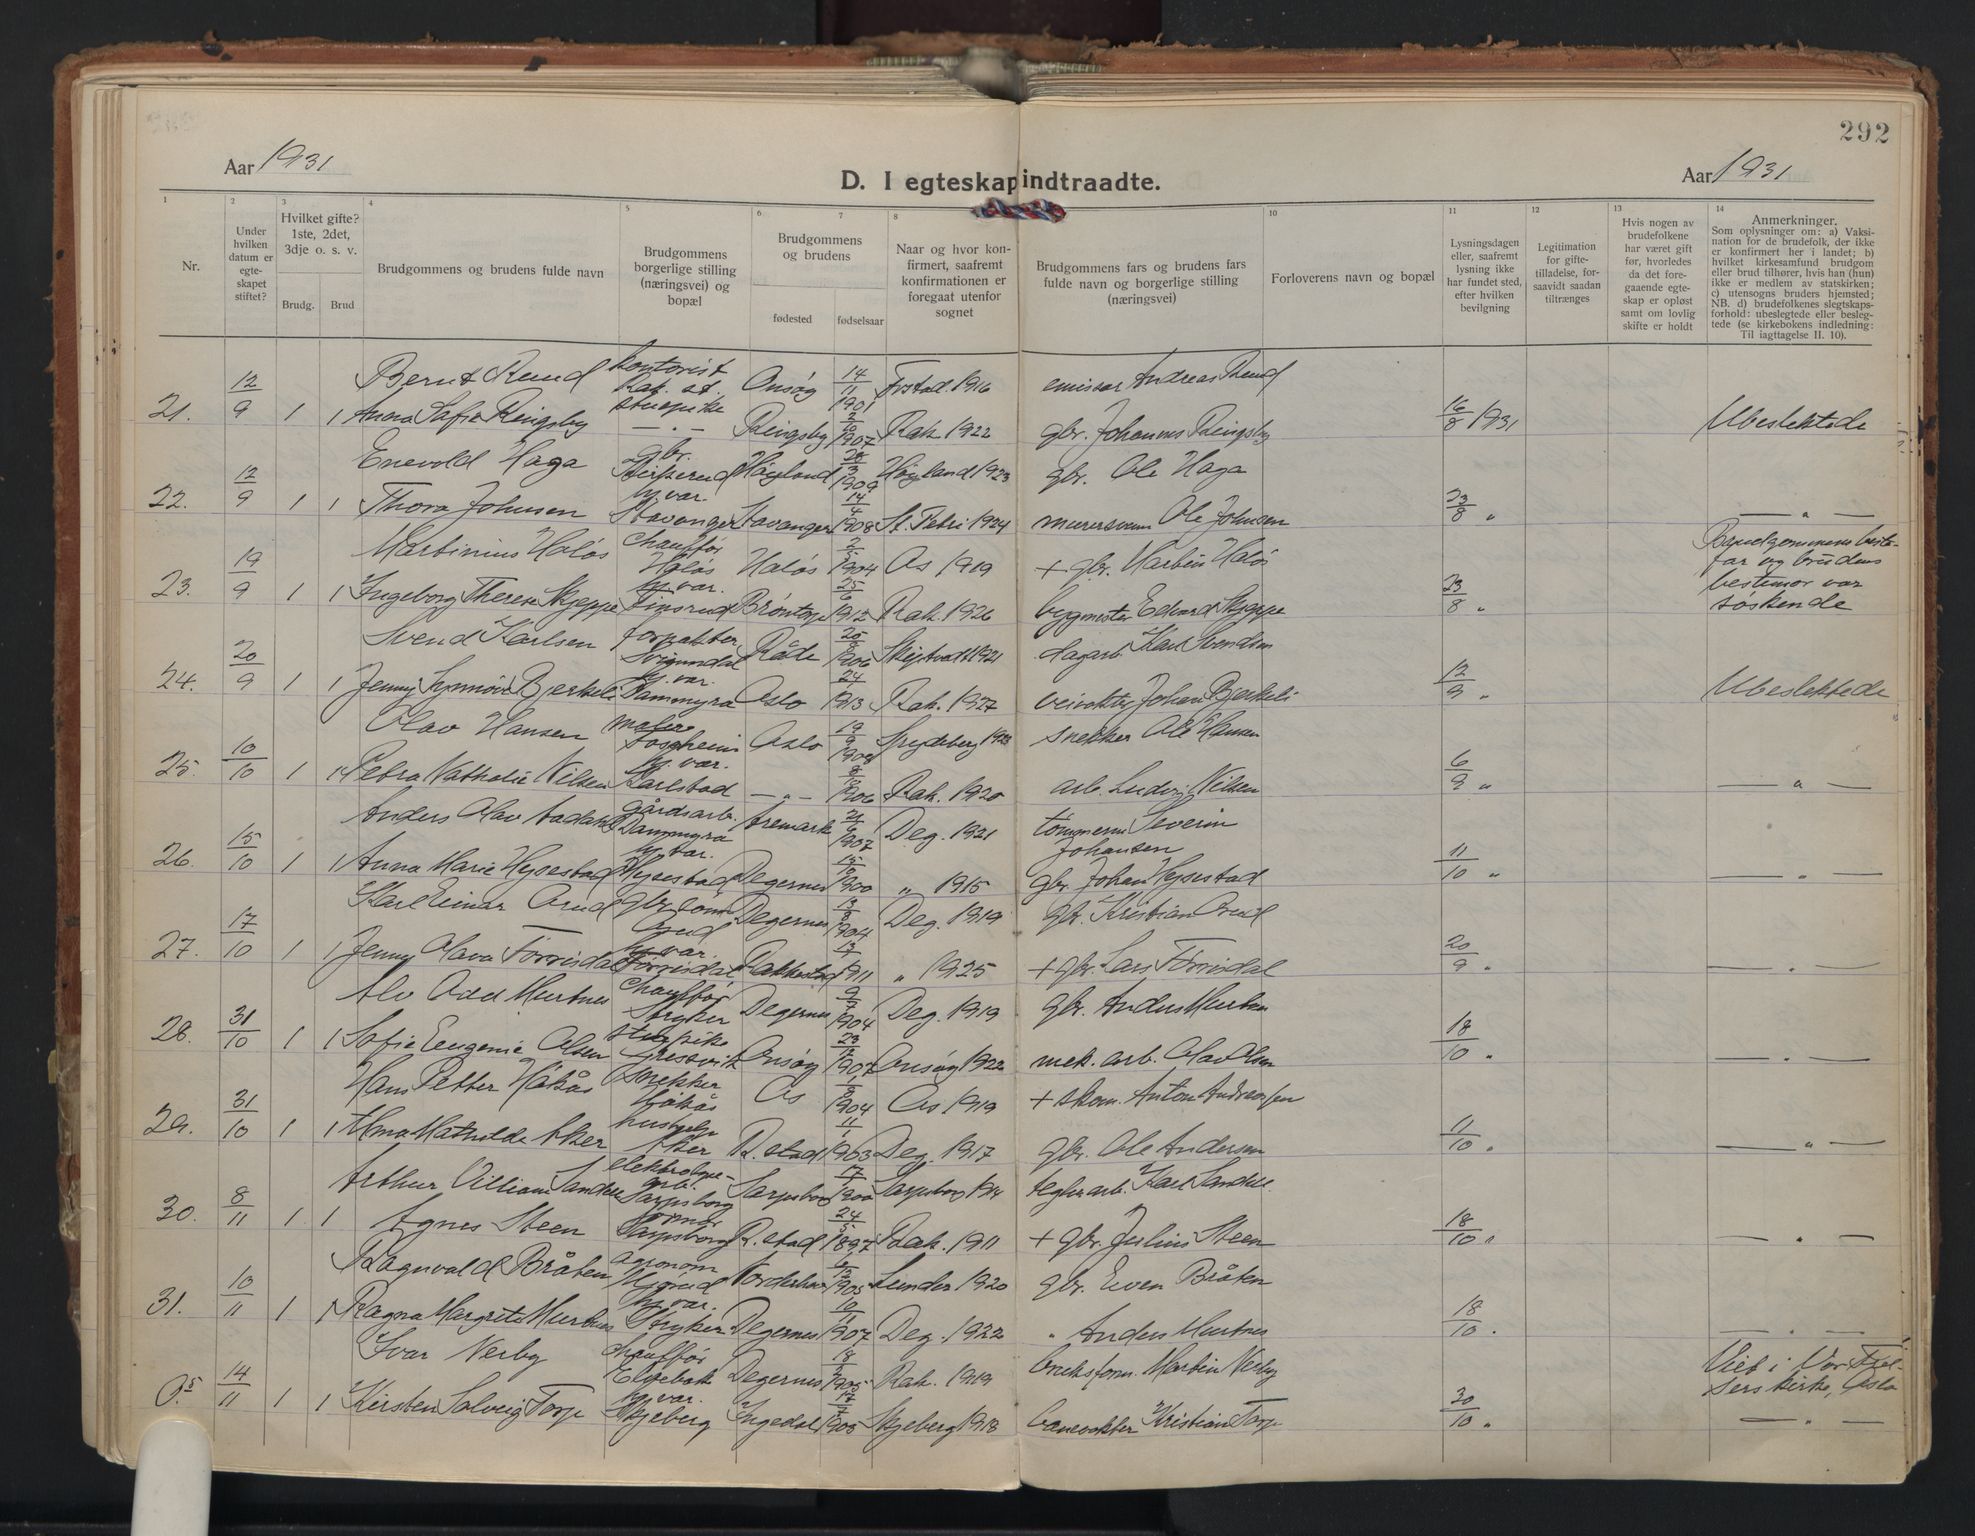 292
Aar 1931
D. I egteskap indtraadte.
Aar 1931
1
2
3
4
5
6
7
8
10
11
12
13
14
Nr.
Under hvilken datum er egteskapet stiftet?
Hvilket gifte? 1ste, 2det, 3dje o. s. v.
Brudg.
Brud
Brudgommens og brudens fulde navn
Brudgommens borgerlige stilling (næringsvei) og bopæl
Brudgommens og brudens
fødested
fødselsaar
Naar og hvor konfirmert, saafremt konfirmationen er foregaat utenfor sognet
Brudgommens fars og brudens fars fulde navn og borgerlige stilling (næringsvei)
Forloverens navn og bopæl
Lysningsdagen eller, saafremt lysning ikke har fundet sted, efter hvilken bevilgning
Legitimation for giftetilladelse, forsaavidt saadan tiltrænges
Hvis nogen av brudefolkene har været gift før, hvorledes da det foregaaende egteskap er opløst samt om lovlig skifte er holdt
Anmerkninger.
Som oplysninger om: a) Vaksination for de brudefolk, der ikke er konfirmert her i landet; b) hvilket kirkesamfund brudgom eller brud tilhører, hvis han (hun) ikke er medlem av statskirken; c) utensogns bruders hjemsted; NB. d) brudefolkenes slegtskapsforhold: ubeslegtede eller beslegtede (se kirkebokens indledning: Til iagttagelse II. 10).
Bernt Ruud kontorist Onsøy 14/11 1901 Frstad. 1916 emissær Andreas Ruud
21. 12/9 1 1 Anna Sofie Ringsby — „ — Ringsby 1907 Rak. 1922 gbr. Johannes Ringsby 16/8 1931 Ubeslektede
Enevold Haga gbr. Høyland 1909 Høyland 1923 gbr. Ole Haga
22. 12/9 1 1 Thora Johnsen hj. var. Stavanger Stavanger 14/4 1908 St. Petri 1924 murersvenn Ole Johnsen 23/8 „ — „ —
Martinius Haløs chauffør Haløs Haløs 2/5 1904 Os 1919 + gbr. Martin Haløs Brudgommens bestefar og brudens bestemor var søskende
23. 19/9 1 1 Ingeborg Therese Skjeppe hj. var. Finsrud Brøntorp 25/6 1912 Rak. 1926 bygmester Edvard Skjeppe 23/8 „
Svend Karlsen forpakter Råde 1906 Skiptvedt 1921 dagarb. Karl Svendsen
24. 20/9 1 1 Jenny Synnøve Bjerkeli hj. var. Dammyra Oslo 1913 Rak. 1927 veivokter Johan Bjerkeli 12/9 „ Ubeslektede
Olav Hansen maler Oslo 19/9 1908 Spydeberg 1923 snekker Ole Hansen
25. 10/10 1 1 Petra Nathalie Nilsen hj. var. Karlstad — „ — 1906 Rak. 1920 arb. Ludvig Nilsen 6/9 „ — „ —
Anders Olav gårdsarb. Dammyra Aremark 1907 Deg. 1921 tømmerm. Severin Johansen
26. 15/10 1 1 Anna Marie Hysestad hj. var. Hysestad Degernes 1900 „ 1915 gbr. Johan Hysestad 11/10 „ — „ —
Karl Einar Orud gbr. sønn Orud Degernes 13/8 1904 Deg. 1919 gbr. Kristian Orud
27. 17/10 1 1 Jenny Olava Torrisdal hj. var. Torrisdal Rakkestad 1911 „ 1925 + gbr. Lars Torrisdal 20/9 „ — „ —
Alv Odd Murtnes chauffør Stryker Degernes 1904 Deg. 1919 gbr. Anders Murtnes
28. 31/10 1 1 Sofie Eugenie Olsen Gressvik Onsøy 23/12 1907 Onsøy 1922 mek. arb. Olav Olsen 18/10 „ — „ —
Hans Petter Håkås snekker Håkås Os 1904 Os 1919 + skom. Anton Andreassen
29. 31/10 1 1 Alma Mathilde Aker Aker R.stad 1903 Deg. 1917 gbr. Ole Andersen 11/10 „ — „ —
Arthur Villiam arb. Sarpsborg Sarpsborg 1900 Sarpsborg 1914 teglverkarb. Karl
30. 8/11 1 1 Agnes Steen Sarpsborg R.stad 24/5 1897 Rak. 1911 + gbr. Julius Steen 18/10 „ — „ —
Ragnvald Bråten agronom Mjørud Norderhov 1905 Lunder 1920 gbr. Even Bråten
31. 10/11 1 1 Ragna Margrete Murtnes hj. var. Stryker Degernes 10/11 1907 Deg. 1922 „ Anders Murtnes 18/10 „ — „ —
Ivar Nerby chauffør Degernes 1905 Rak. 1919 bruksform. Martin Nerby Viet i Vår Frelsers kirke, Oslo
0.5 14/11 1 1 Kirsten Solveig Torp hj. var. Skjeberg Ingedal 1905 Skjeberg 1918 banevokter Kristian Torp 30/10 „ — „ —